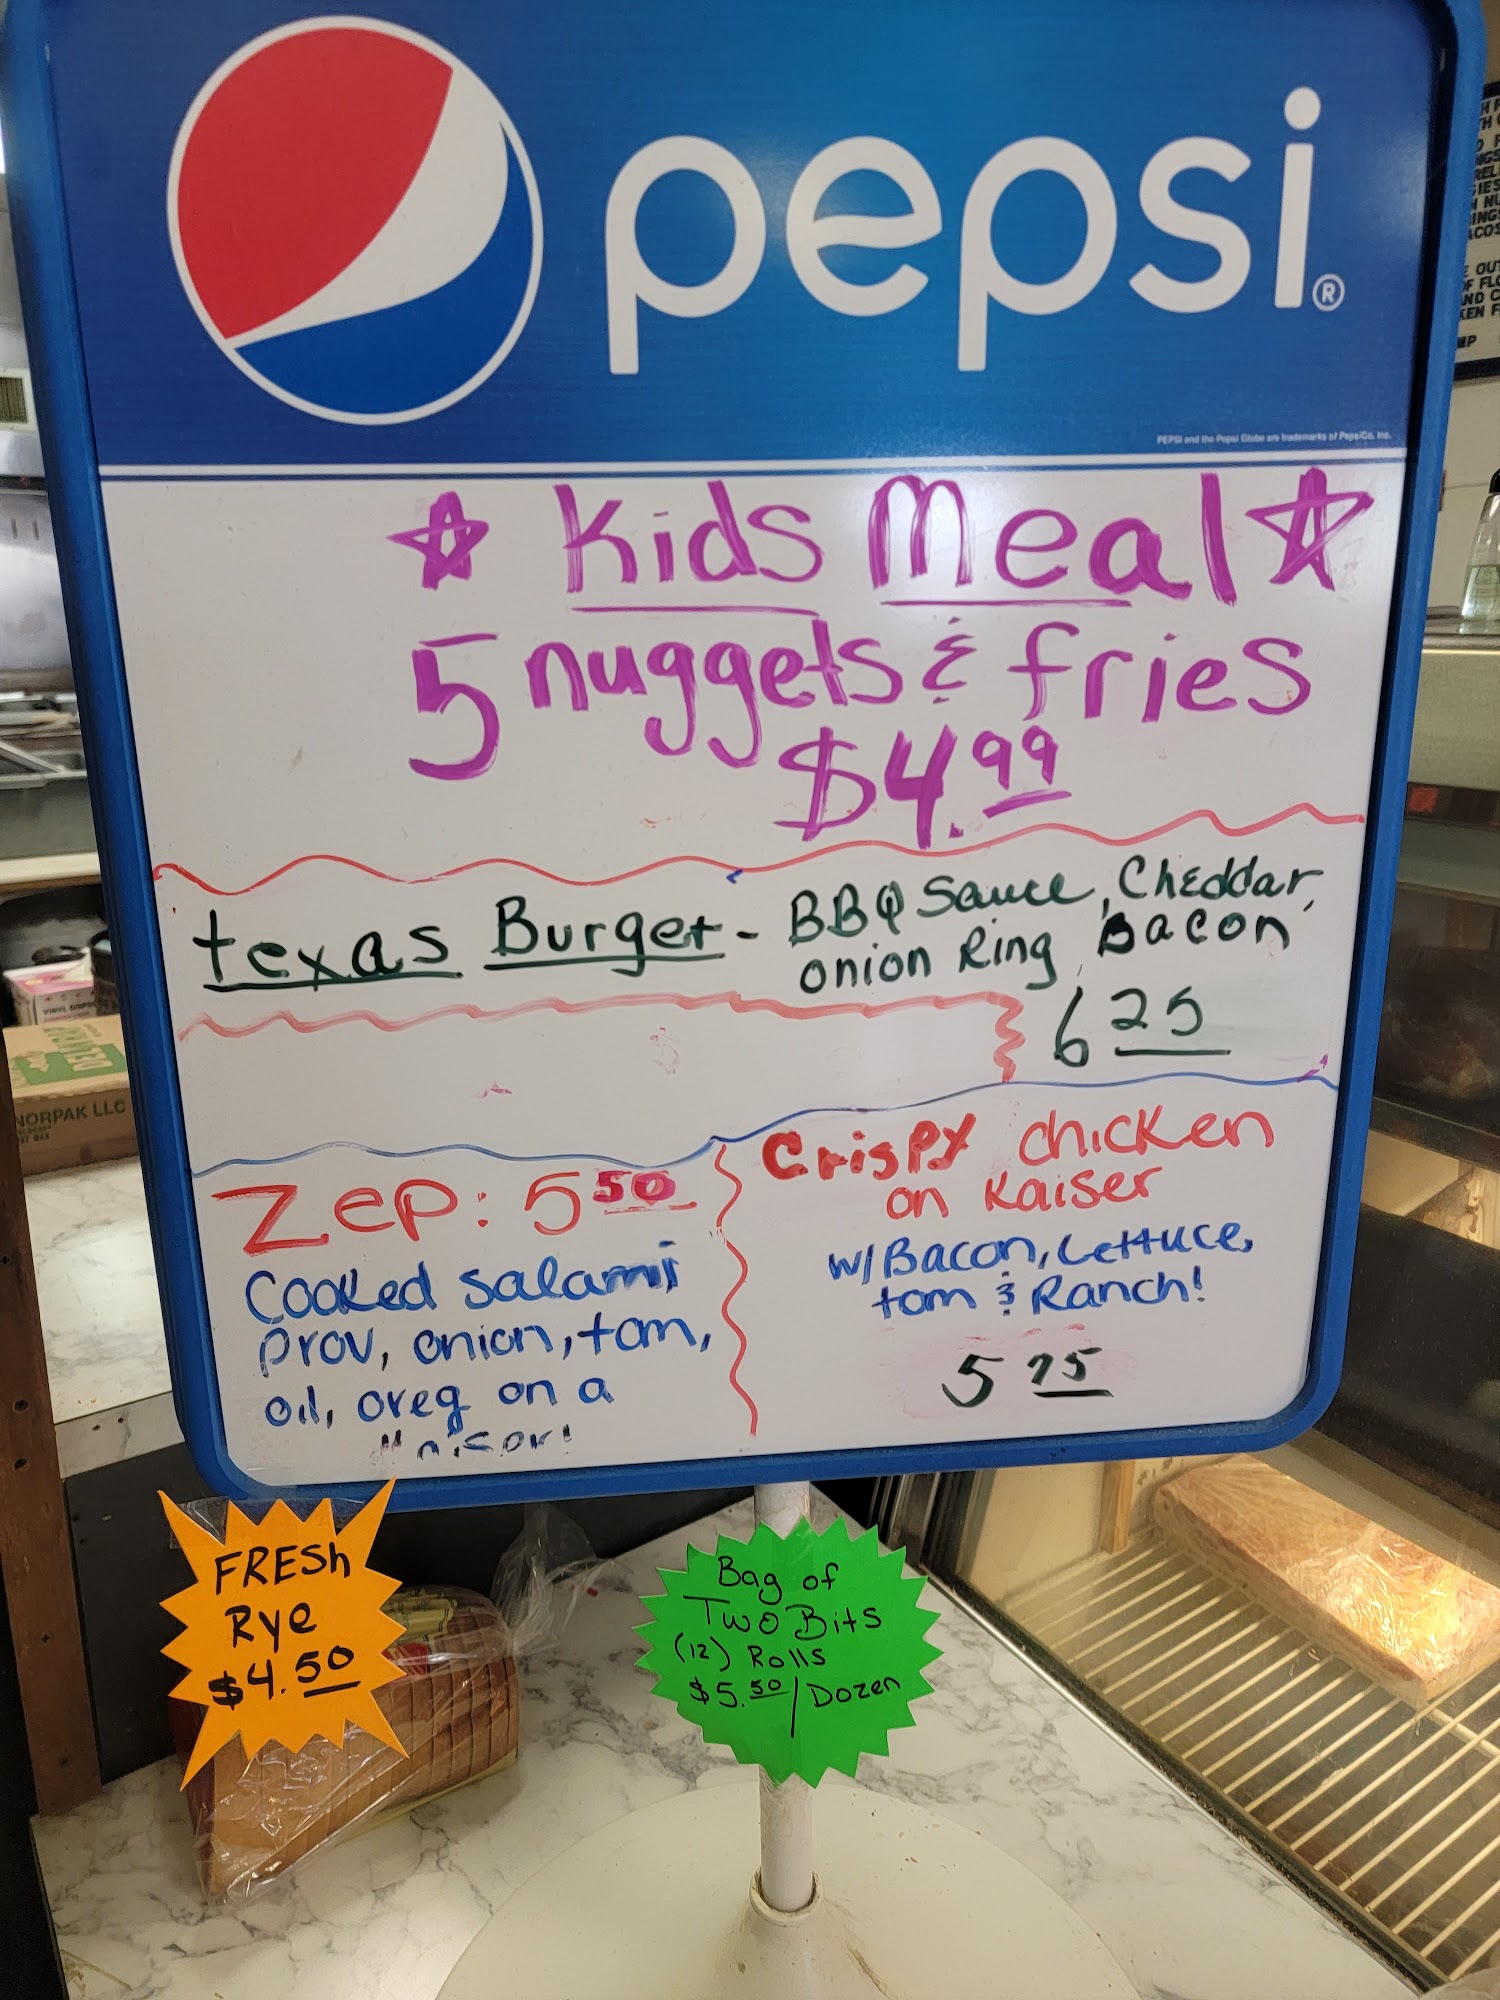 pepsi®
PEPSI and the Pepsi Globe are trademarks of PepsiCo, Inc.
Kids Meal
5 nuggets & fries
$4.99
texas Burger - BBQ Sauce, Cheddar,
onion Ring, Bacon
6 25
Zep: 5 50
Cooked salami,
prov, onion, tom,
oil, oreg on a
Crispy chicken
on Kaiser
w/Bacon, Lettuce,
tom & Ranch!
5 75
FRESh
Rye
$4.50
Bag of
Two Bits
(12) Rolls
$5.50/Dozen
NORPAK LLC